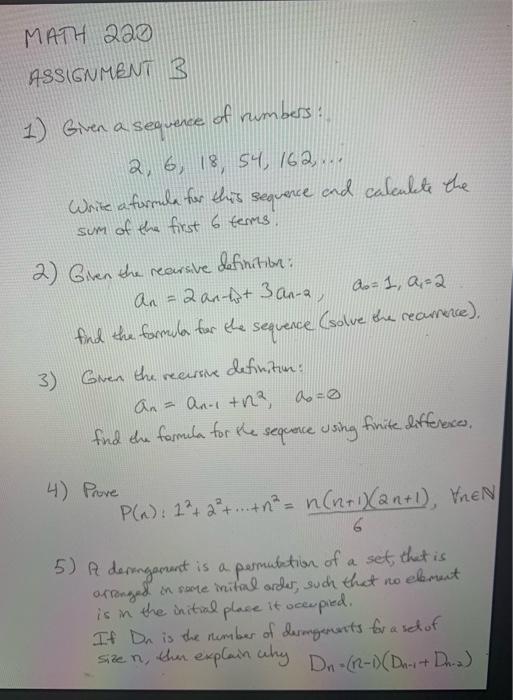 MATH 220
ASSIGNMENT 3
1) Given a sequence of numbers:
2, 6, 18, 54, 162,...
Write a formula for this sequence and calculate the
sum of the first 6 terms.
2) Given the recursive definition:
aₙ = 2aₙ₋₁ + 3aₙ₋₂, a₀ = 1, a₁ = 2
find the formula for the sequence (solve the recurrence).
3) Given the recursive definition:
aₙ = aₙ₋₁ + n², a₀ = 0
find the formula for the sequence using finite differences.
4) Prove
P(n): 1² + 2² + ... + n² = n(n+1)(2n+1), ∀n∈N
6
5) A derangement is a permutation of a set, that is
arranged in some initial order, such that no element
is in the initial place it occupied.
If Dn is the number of derangements for a set of
size n, then explain why Dₙ = (n-1)(Dₙ₋₁ + Dₙ₋₂)